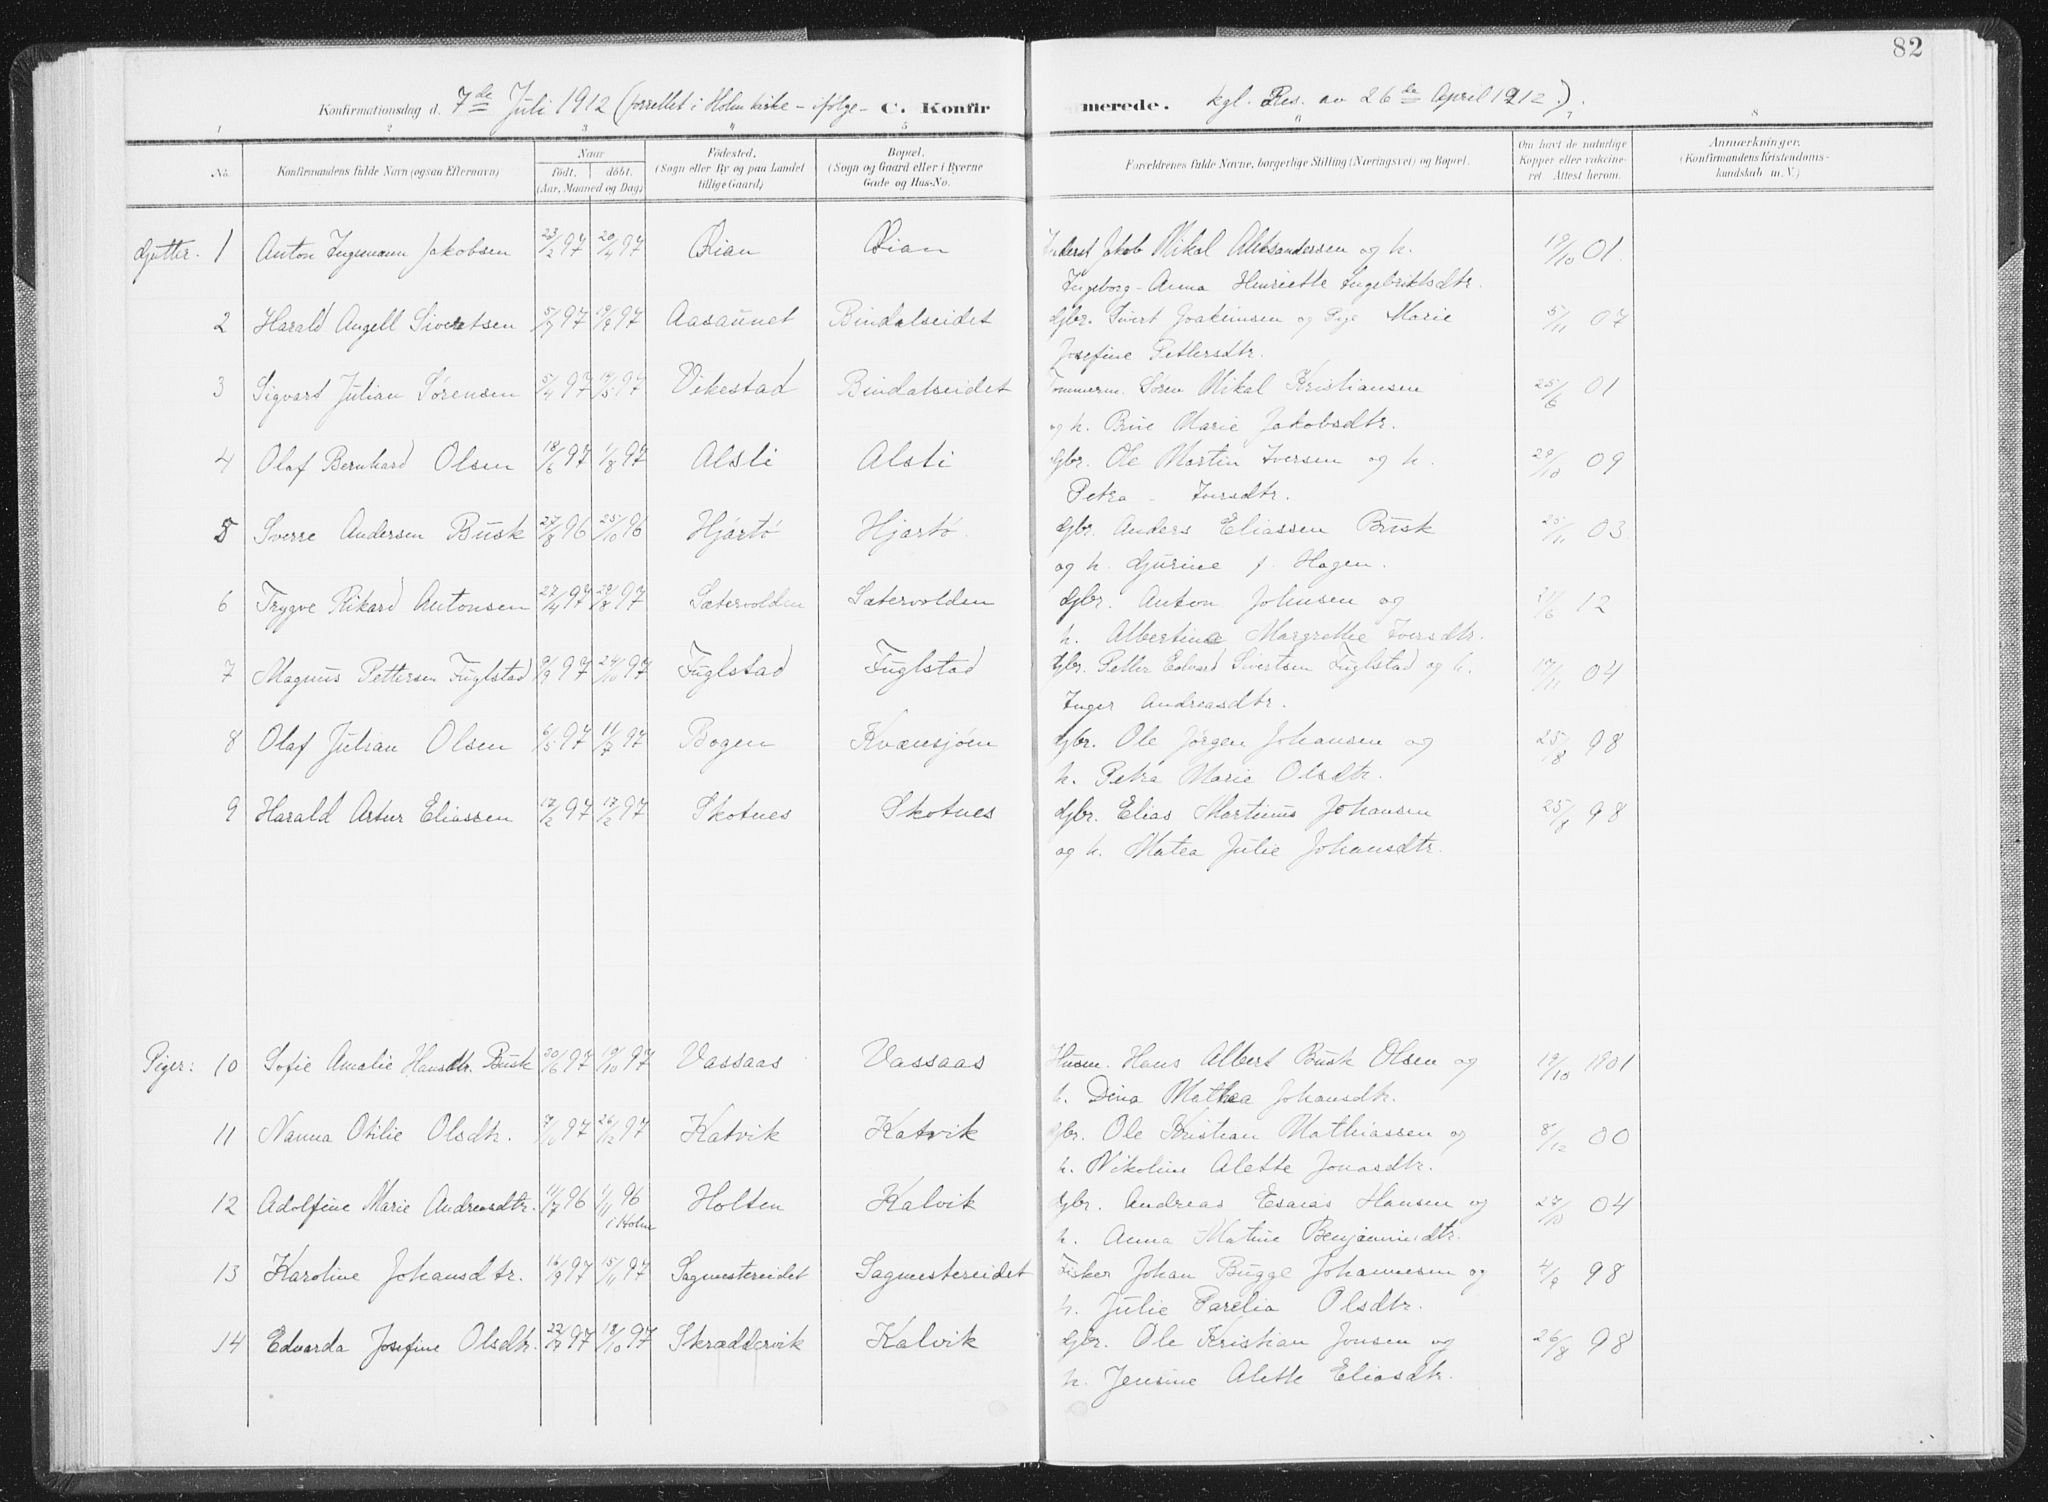 82
Konfirmationsdag d. 7de Juli 1912 (forrettet i Holm kirke - ifølge - C. Konfirmerede. kgl. Res. av 26de April 1912).
1 2 3 4 5 6 7 8
No. Konfirmandens fulde Navn (ogsaa Efternavn) Naar født. døbt. (Aar, Maaned og Dag) Fødested. (Sogn eller By og paa Landet tillige Gaard) Bopæl. (Sogn og Gaard eller i Byerne Gade og Hus-No. Forældrenes fulde Navne, borgerlige Stilling (Næringsvei) og Bopæl. Om havt de naturlige Kopper eller vaccineret Attest herom. Anmærkninger. (Konfirmandens Kristendomskundskab m. V.)
Gutter. 1 Anton Ingemann Jakobsen 23/2 97 20/4 97 Øian Øian Inderst Jakob Mikal Aleksandersen og h. 19/10 01.
Ingeborg-Anna Henriette Ingebriktsdtr.
2 Harald Angell Sivertsen 5/7 97 97 Aasaunet Bindalseidet Gbr. Sivert Joakimsen og Pige Marie 5/11 07
Josefine Pettersdtr.
3 Sigvart Julian Sørensen 5/4 97 97 Vikestad Bindalseidet Tømmerm. Søren Mikal Kristiansen 25/6 01
og h. Brine Marie Jakobsdtr.
4 Olaf Bernhard Olsen 18/6 97 1/8 97 Alsli Alsli Gbr. Ole Martin Iversen og h. 29/10 09
Petra - Iversdtr.
5 Sverre Andersen Busk 27/8 96 25/10 96 Hjartø Hjartø. Gbr. Anders Eliassen Busk 25/11 03.
og h. Gurine f. Hagen.
6 Trygve Rikard Antonsen 27/4 97 29/8 97 Sætervolden Sætervolden Gbr. Anton Johnsen og 12
h. Albertine Margrethe Iversdtr.
7 Magnus Pettersen Fuglstad 9/9 97 24/10 97 Fuglstad Fuglstad Gbr. Petter Edvard Sivertsen Fuglstad og h. 17/11 04
Inger Andreasdtr.
8 Olaf Julian Olsen 6/5 97 11/7 97 Bogen Kvænsjøen Gbr. Ole Jørgen Johansen og 25/8 98
h. Petra Marie Olsdtr.
9 Harald Artur Eliassen 17/2 97 17/2 97 Skotnes Skotnes Gbr. Elias Martinus Johansen 25/8 98
og h. Matea Julie Johansdtr.
Piger: 10 Sofie Amalie Hansdtr. Busk 20/6 97 19/10 97 Vassaas Vassaas Husm. Hans Albert Busk Olsen og 19/10 1901
h. Dina Mathea Johansdtr.
11 Nanna Otilie Olsdtr. 97 26/12 97 Katvik Katvik Gbr. Ole Kristian Mathiassen og 8/12 00
h. Nikoline Alette Jonasdtr.
12 Adolfine Marie Andreasdtr. 96 1/11 96 Holten Kalvik Gbr. Andreas Esaias Hansen og 27/10 04
i Holm h. Anna Matine Benjaminsdtr.
13 Karoline Johansdtr. 16/9 97 15/11 97 Sagmestereidet Sagmestereidet Fisker Johan Bugge Johannesen og 4/9 98
h. Julie Parelia Olsdtr.
14 Edvarda Josefine Olsdtr. 22/7 97 18/10 97 Skræddervik Kalvik Gbr. Ole Kristian Jonsen og 26/8 98
h. Jensine Alette Eliasdtr.